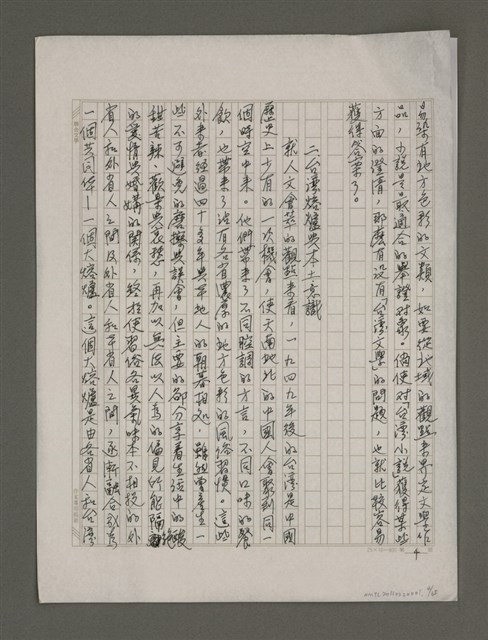 易染有地方色彩的文類，如要從地域的觀點來界定文學作
品，小說是最適合的舉證對象。倘使對「台灣小說」獲得某些
方面的澄清，那麼有沒有「台灣文學」的問題，也就比較容易
獲得答案了。
二、台灣熔爐與本土意識
就人文會萃的觀點來看，一九四九年後的台灣是中國
歷史上少有的一次機會，使天南地北的中國人會聚到同一
個時空中來。他們帶來了不同腔調的方言，不同口味的餐
飲，也帶來了沾有各省濃厚的地方色彩的風俗習慣。這些
外來者經過四十多年與本地人的朝暮相処，雖然曾產生一
些不可避免的磨擦與誤會，但主要的部分享着生活中的酸
甜苦辣、歡樂與哀愁，再加以無法以人為的偏見所能隔絕
的愛情與婚媾的關係，終於使省俗各異氣味本不相投的外
省人和外省人之間及外省人和本省人之間，逐漸融合成為
一個共同体—一個大熔爐。這個大熔爐是由各省人和台灣
4